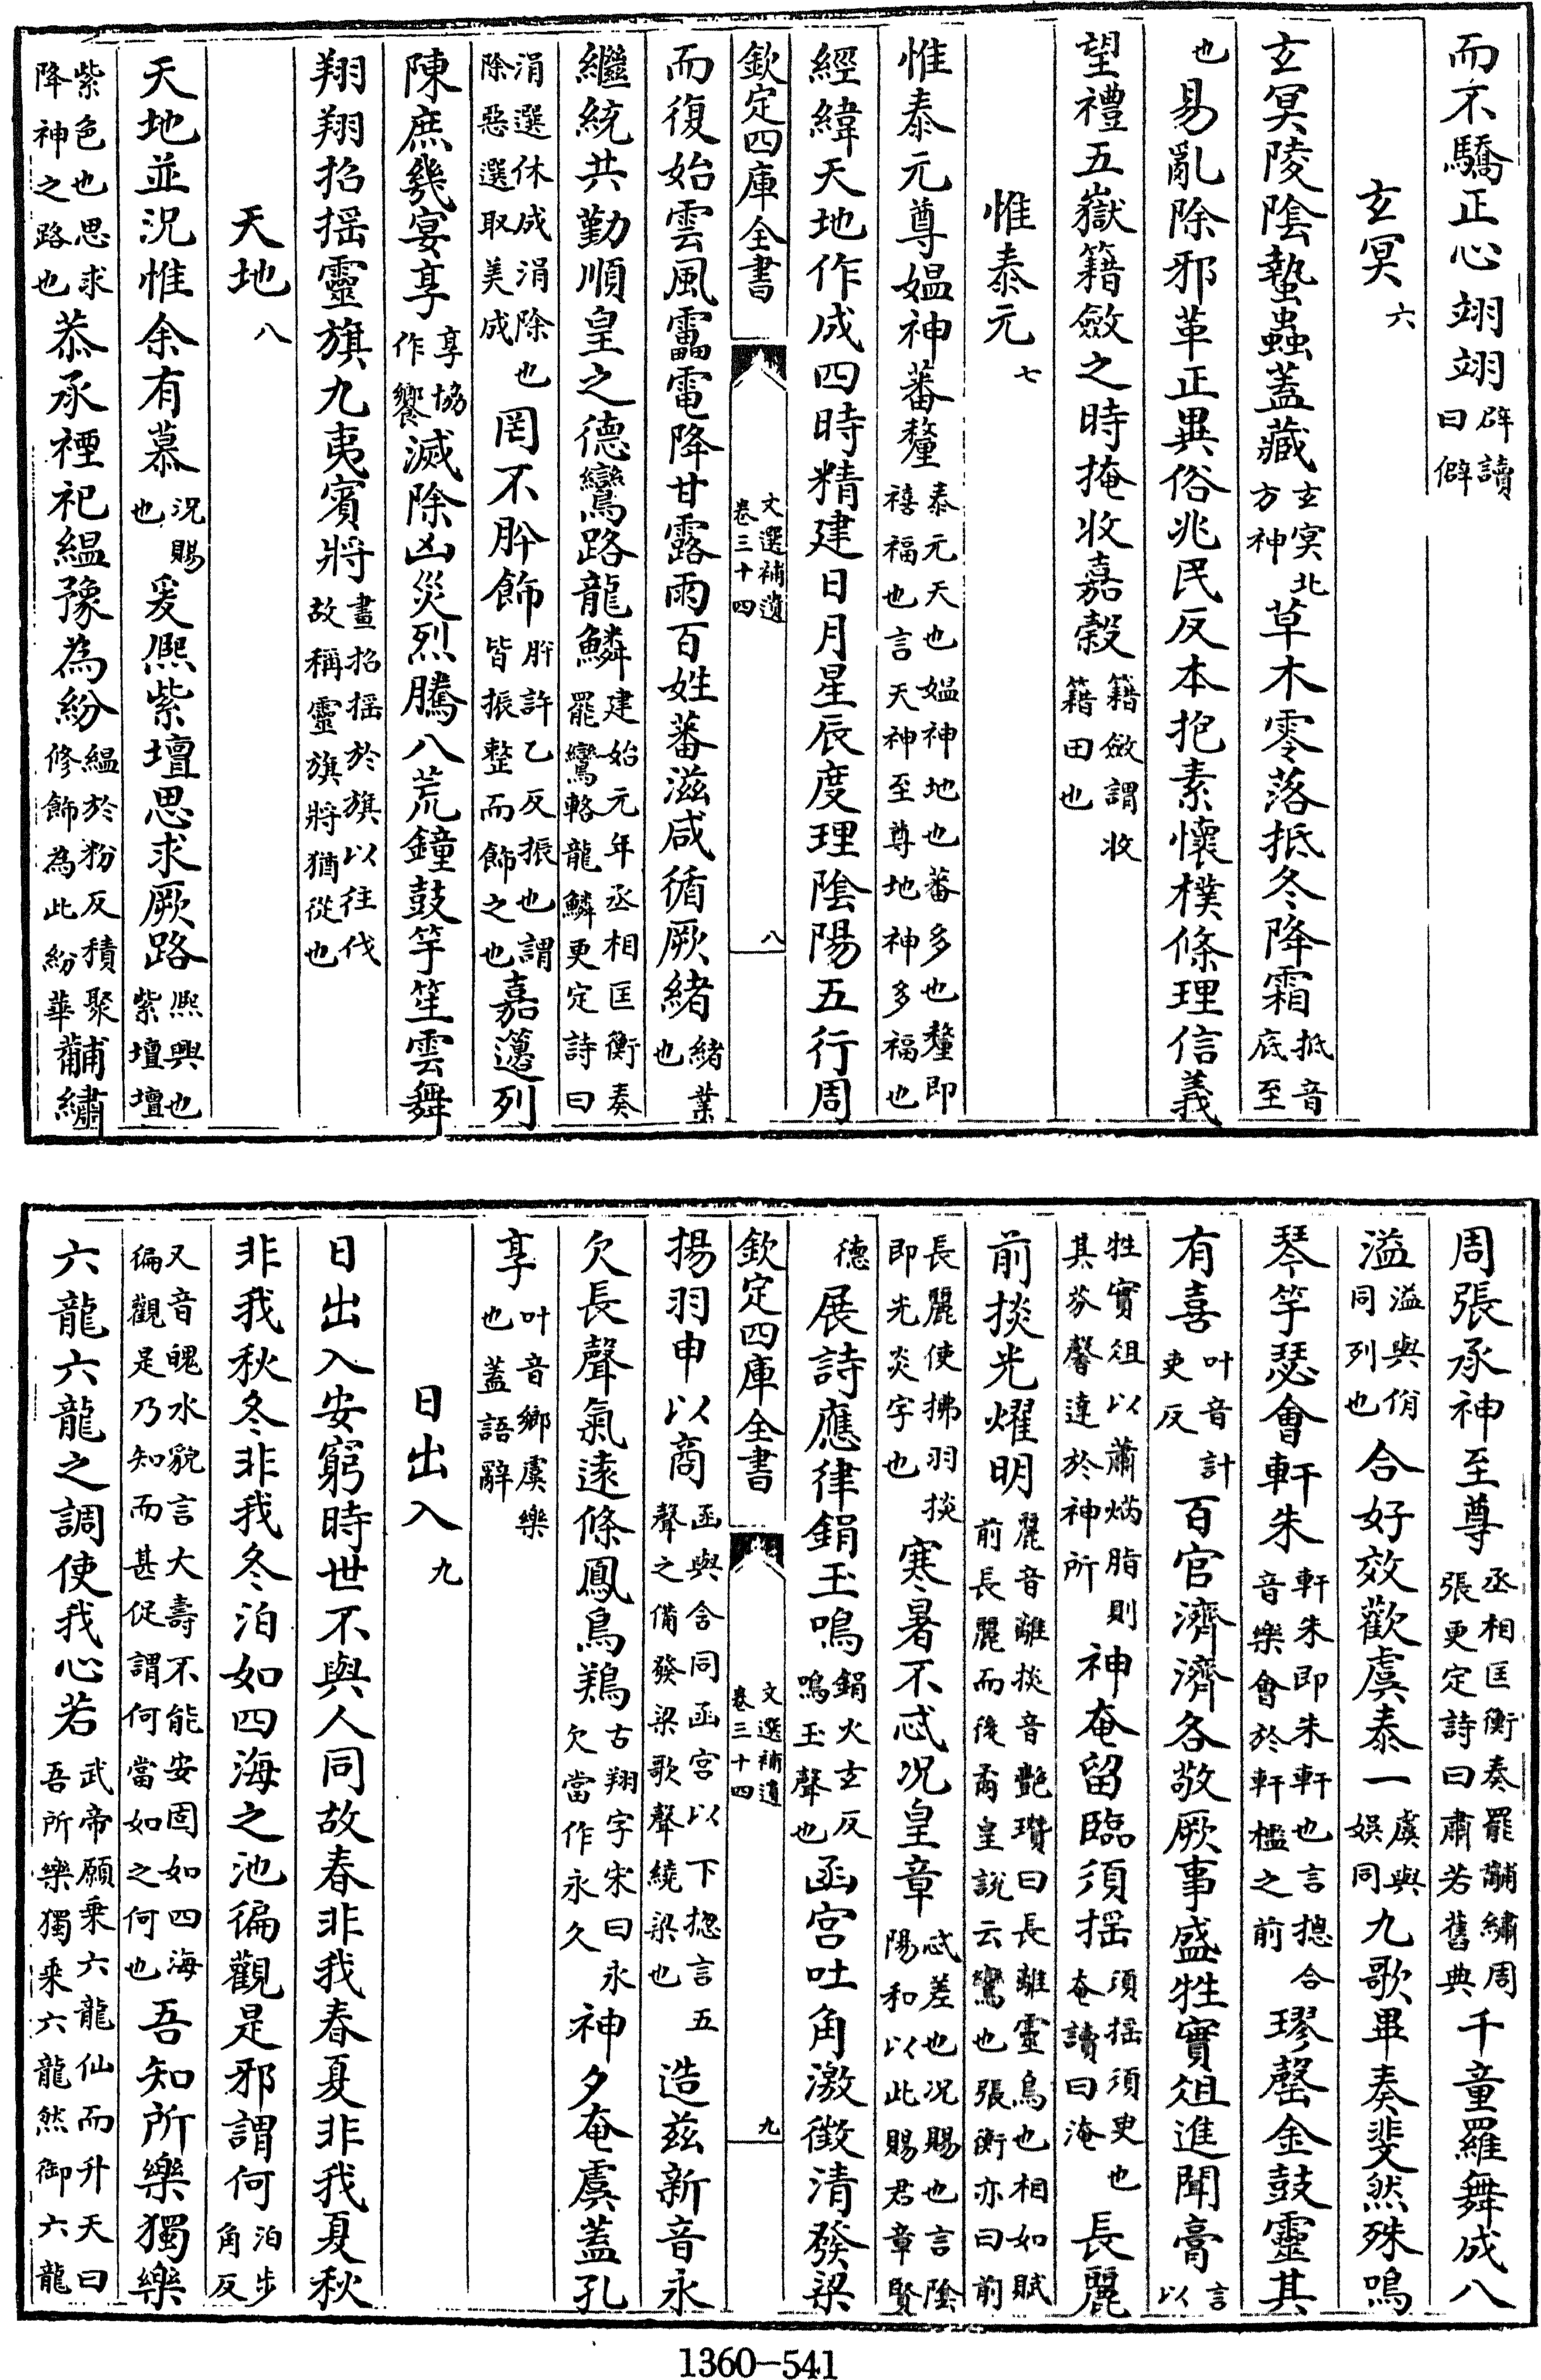 而不驕正心翊翊辟讀曰僻
玄冥六
玄冥陵陰蟄蟲蓋藏玄冥北方神草木零落抵冬降霜抵音底至
也易亂除邪革正異俗兆民反本抱素懷樸條理信義
望禮五嶽籍斂之時掩收嘉榖籍斂謂收籍田也
惟泰元七
惟泰元尊媼神蕃釐泰元天也媼神地也蕃多也釐即禧福也言天神至尊地神多福也
經緯天地作成四時精建日月星辰度理陰陽五行周
欽定四庫全書 文選補遺卷三十四 八
而復始雲風靁電降甘露雨百姓蕃滋咸循厥緒緒業也
繼統共勤順皇之德鸞路龍鱗建始元年丞相匡衡奏罷鸞輅龍鱗更定詩曰
涓選休成涓除也除惡選取美成罔不肸飾肸許乙反振也謂皆振整而飾之也嘉籩列
陳庶幾宴享享協作饗滅除凶災烈騰八荒鐘鼓竽笙雲舞
翔翔招摇靈旗九夷賓將畫招摇於旗以往伐故稱靈旗將猶從也
天地八
天地並況惟余有慕況賜也爰熈紫壇思求厥路熈興也紫壇壇
紫色也思求降神之路也恭承禋祀緼豫為紛緼於粉反積聚修飾為此紛華黼繡
周張承神至尊丞相匡衡奏罷黼繡周張更定詩曰肅若舊典千童羅舞成八
溢溢與佾同列也合好效歡虞泰一虞與娯同九歌畢奏斐然殊鳴
琴竽瑟會軒朱軒朱即朱軒也言揔合音樂會於軒檻之前璆磬金鼓靈其
有喜叶音計吏反百官濟濟各敬厥事盛牲實俎進聞膏言以
牲實俎以蕭焫脂則其芬馨達於神所神奄留臨須摇須摇須臾也奄讀曰淹長麗
前掞光燿明麗音離掞音艶瓚曰長離靈鳥也相如賦前長麗而後矞皇説云鸞也張衡亦曰前
長麗使拂羽掞即光炎字也寒暑不忒况皇章忒差也况賜也言陰陽和以此賜君章賢
德展詩應律鋗玉鳴鋗火玄反鳴玉聲也函宫吐角激徵清發梁
欽定四庫全書 文選補遺卷三十四 九
揚羽申以商函與含同函宫以下揔言五聲之備發梁歌聲繞梁也造兹新音永
欠長聲氣逺條鳳鳥鴹古翔字宋曰永欠當作永久神夕奄虞蓋孔
享叶音鄉虞樂也蓋語辭
日出入九
日出入安窮時世不與人同故春非我春夏非我夏秋
非我秋冬非我冬泊如四海之池徧觀是邪謂何泊步角反
又音魄水貌言大壽不能安固如四海徧觀是乃知而甚促謂何當如之何也吾知所樂獨樂
六龍六龍之調使我心若武帝願乗六龍仙而升天曰吾所樂獨乗六龍然御六龍
1360-541